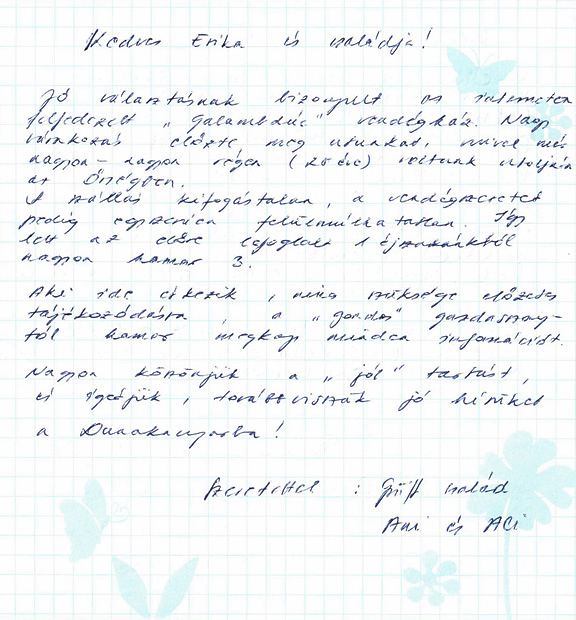 Kedves Erika és családja!
Jó választásnak bizonyult az interneten
felfedezett „Galambdúc" vendégház. Nagy
várakozás előzte meg utunkat, mivel már
nagyon-nagyon régen (25 éve) voltunk utoljára
az Őrségben.
A szállás kifogástalan, a vendégszeretet
pedig egyszerűen felülmúlhatatlan. Így
lett az előre lefoglalt 1 éjszakánkból
nagyon hamar 3.
Aki ide érkezik, nincs szüksége előzetes
tájékozódásra, a „gondos" gazdasszony-
tól hamar megkap minden információt.
Nagyon köszönjük a „jól" tartást,
és ígérjük, tovább visszük jó hírüket
a Dunakanyarba!
Szeretettel : család
Ani és Ali